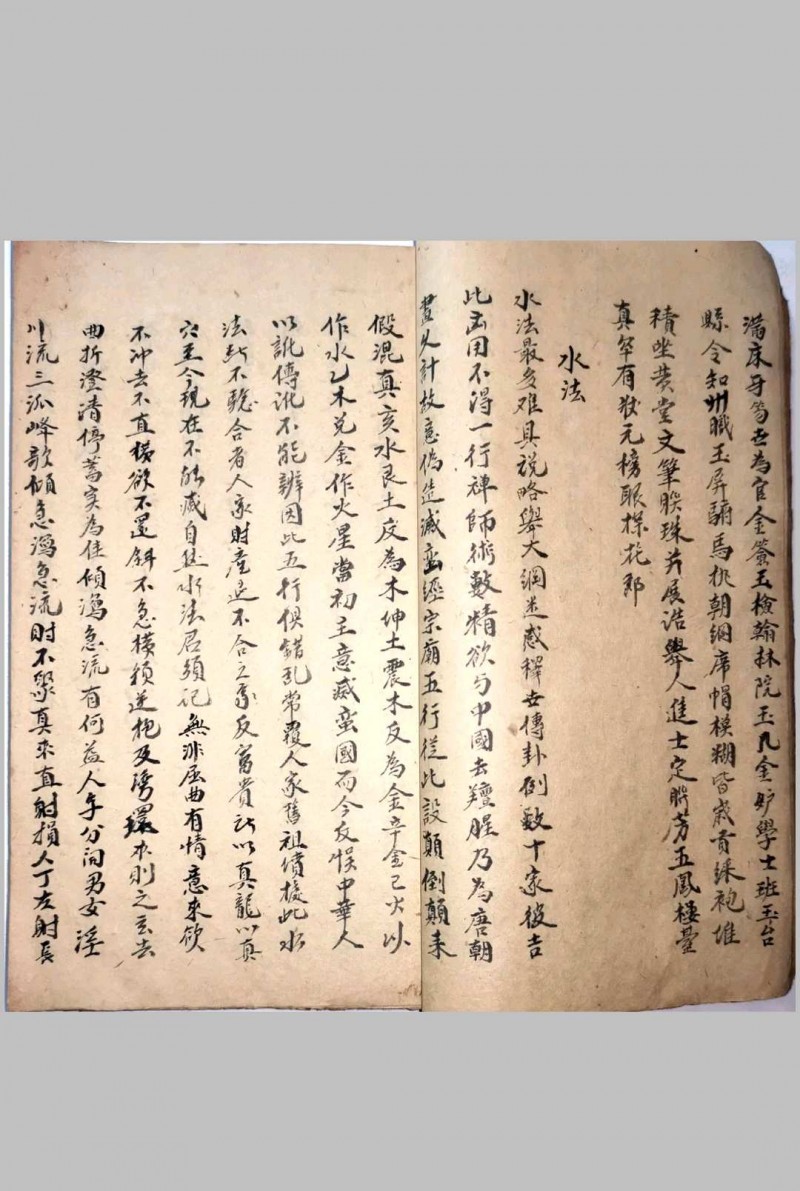 滿床牙笏世為官金簽玉檢翰林院玉几金炉學士班玉台
縣令知州職玉屏駙馬排朝綱席帽模糊皆歲貢綠袍堆
積坐黄堂文筆联珠并展誥舉人進士定聨芳五鳳楼臺
真罕有狀元榜眼探花郎
水法
水法最多难具説略舉大綱迷惑釋世傳卦例数十家彼吉
此凶用不得一行禅師術數精欲与中國去羶腥乃為唐朝
畫久計故意偽造滅蛮經宗廟五行從此設顛倒顛来
假混真亥水艮土反為木坤土震木反為金辛金巳火以
作水乙木兑金作火星當初主意滅蛮國而今反悮中華人
以訛傳訛不能辨因此五行俱錯乱常覆人家舊祖債按此水
法断不驗合者人家財産退不合之家反富貴所以真龍以真
穴至今現在不能滅自然水法君須記無非屈曲有情意来欲
不冲去不直横欲不還斜不急横須逆抱及湾環水則之玄去
曲折澄清停蓄实為佳傾瀉急流有何益人字分向男女淫
川流三派峰歌傾急瀉急流財不聚真来直射損人丁左射長